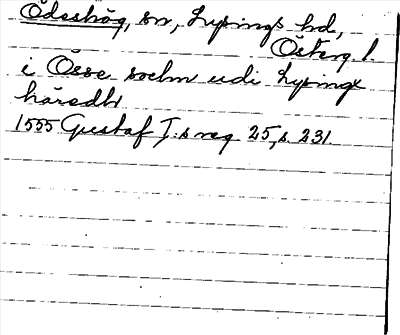 Ödeshög, sn, Lysings hd,
Österg. l.
i Össe sochn udi Lysings
häredh
1555 Gustaf I:s reg 25, s. 231.